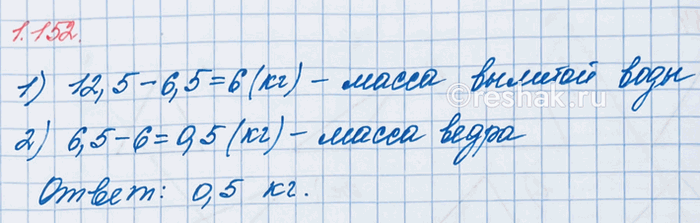 1.152.
1) 12,5 - 6,5 = 6 (кг) - масса вылитой воды
©reshak.ru
2) 6,5 - 6 = 0,5 (кг) - масса ведра
Ответ: 0,5 кг.